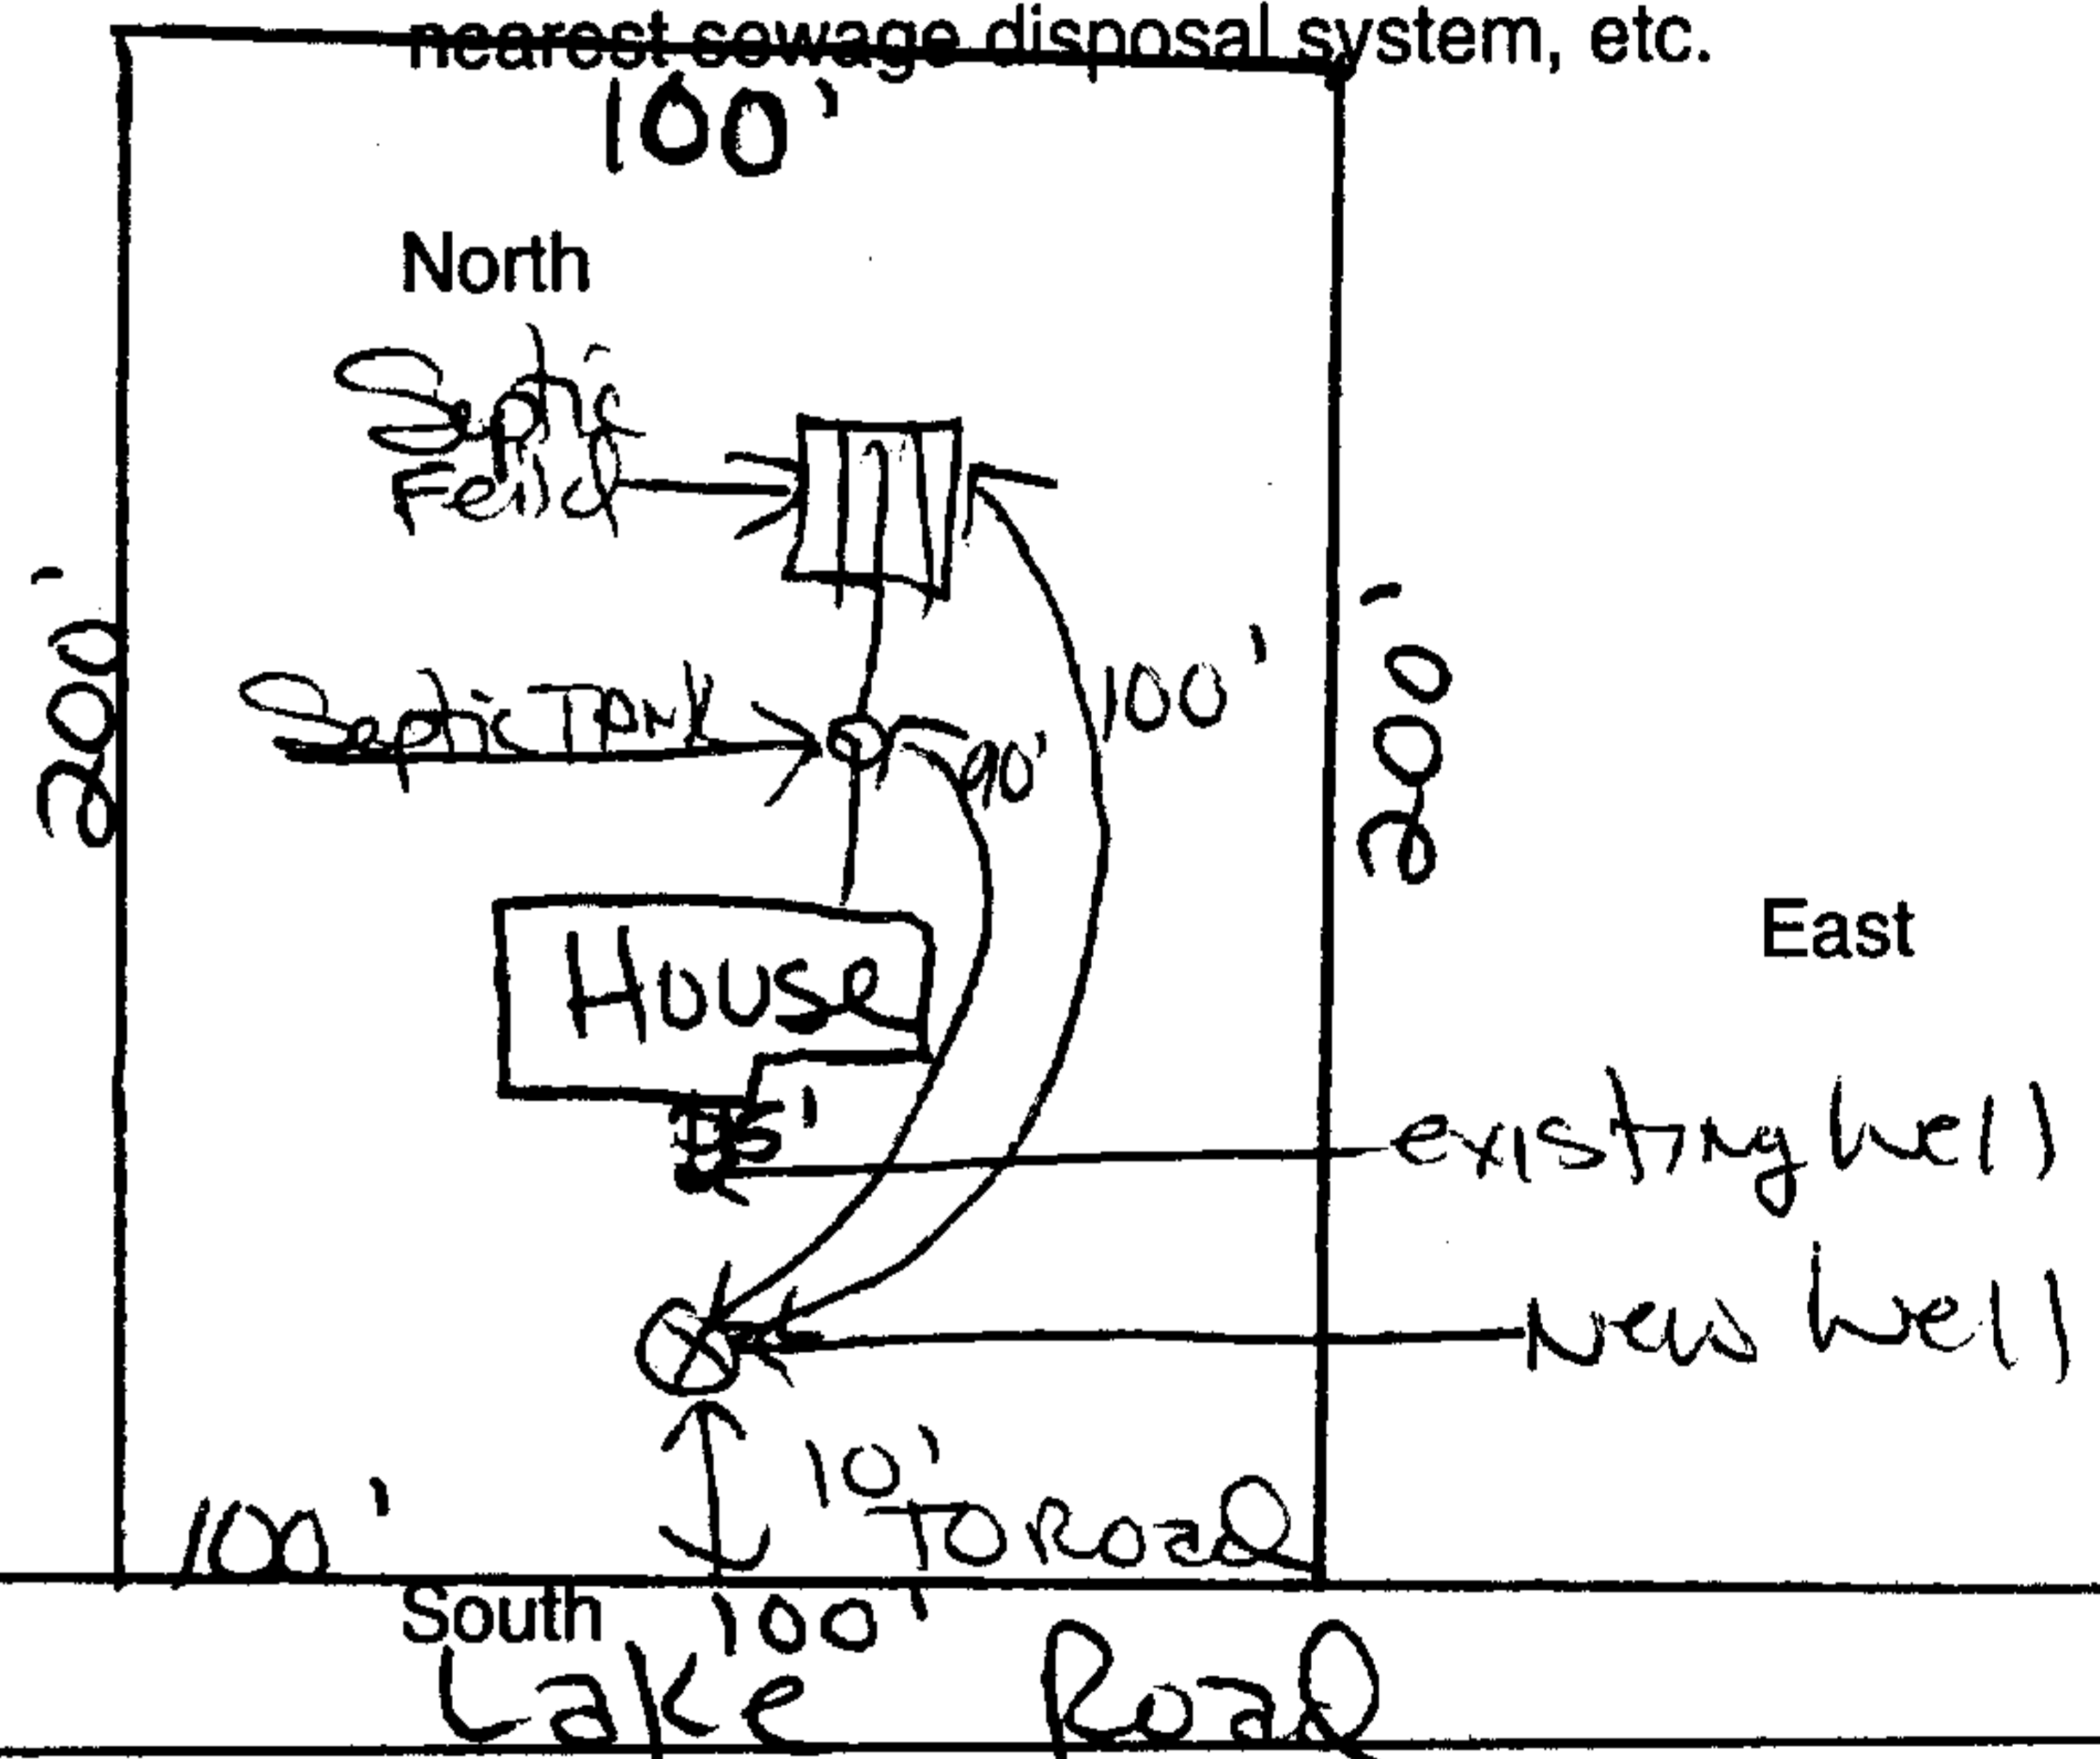 nearest sewage disposal system, etc.
100'
North
Septic
Feild
200'
200'
100'
Septic TANK
90'
House
East
existing well
New well
10'
To Road
100'
South
100'
Lake Road